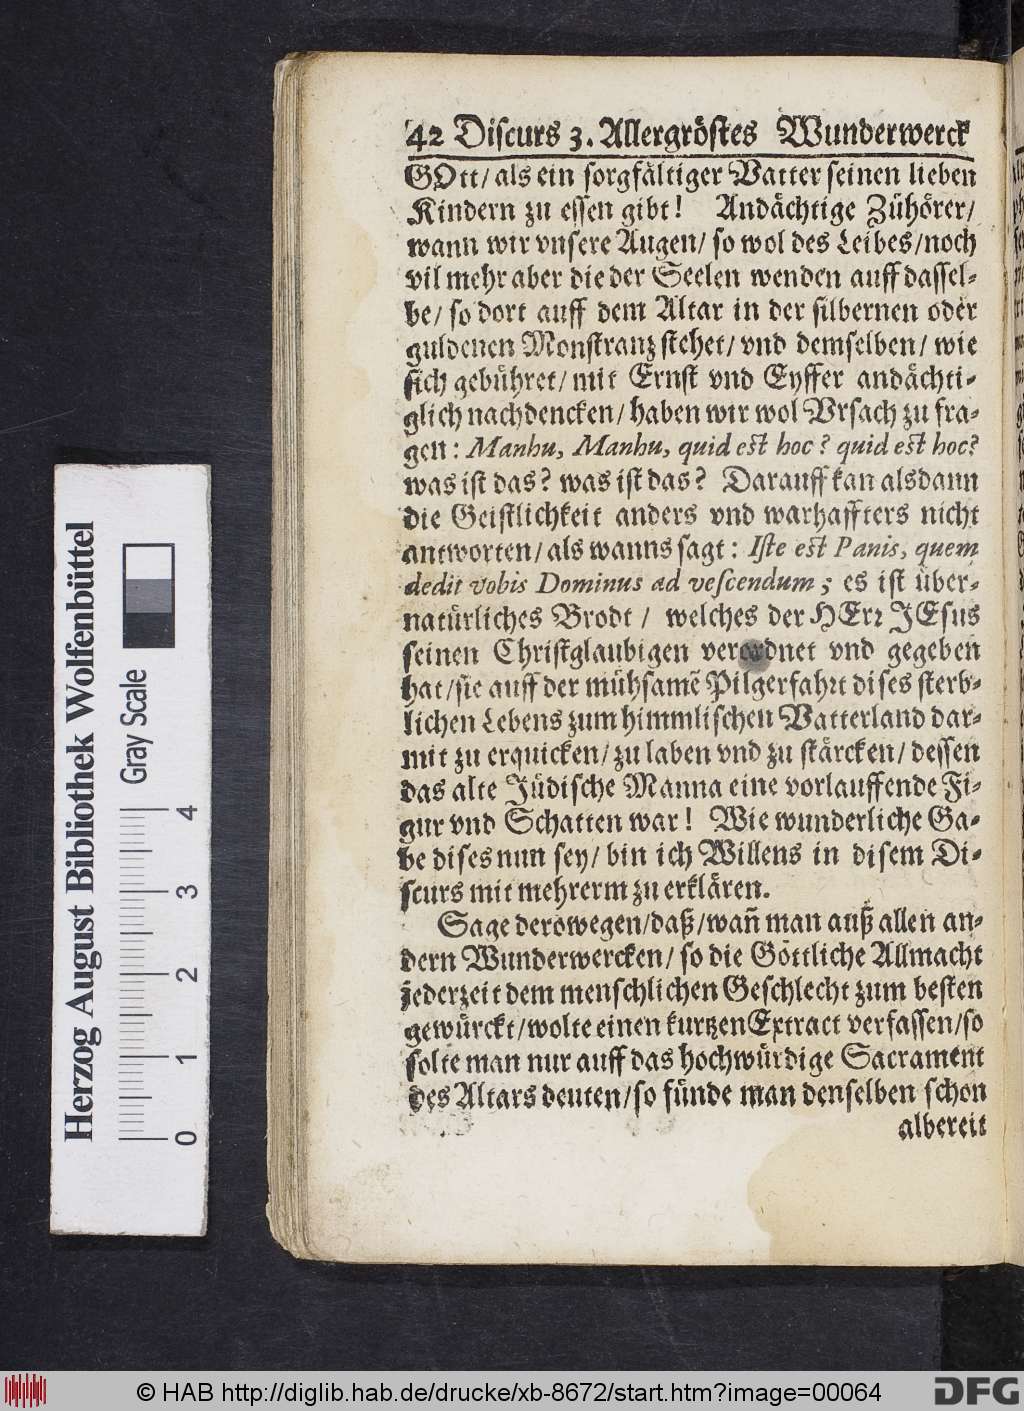 42 Discurs 3. Allergröstes Wunderwerck
GOtt/ als ein sorgfältiger Vatter seinen lieben
Kindern zu essen gibt! Andächtige Zühörer/
wann wir vnsere Augen/ so wol des Leibes/ noch
vil mehr aber die der Seelen wenden auff dassel-
be/ so dort auff dem Altar in der silbernen oder
guldenen Monstranz stehet/ vnd demselben/ wie
sich gebühret/ mit Ernst vnd Eyffer andächti-
glich nachdencken/ haben wir wol Vrsach zu fra-
gen: Manhu, Manhu, quid est hoc? quid est hoc?
was ist das? was ist das? Darauff kan alsdann
die Geistlichkeit anders vnd warhaffters nicht
antworten/ als wanns sagt: Iste est Panis, quem
dedit vobis Dominus ad vescendum; es ist über-
natürliches Brodt/ welches der HErr JEsus
seinen Christglaubigen verordnet vnd gegeben
hat/ sie auff der mühsamē Pilgerfahrt dises sterb-
lichen Lebens zum himmlischen Vatterland dar-
mit zu erquicken/ zu laben vnd zu stärcken/ dessen
das alte Jüdische Manna eine vorlauffende Fi-
gur vnd Schatten war! Wie wunderliche Ga-
be dises nun sey/ bin ich Willens in disem Di-
scurs mit mehrerm zu erklären.
Sage derowegen/ daß/ wañ man auß allen an-
dern Wunderwercken/ so die Göttliche Allmacht
jederzeit dem menschlichen Geschlecht zum besten
gewürckt/ wolte einen kurtzen Extract verfassen/ so
solte man nur auff das hochwürdige Sacrament
des Altars deuten/ so fünde man denselben schon
albereit
Herzog August Bibliothek Wolfenbüttel
Gray Scale
0 1 2 3 4
© HAB http://diglib.hab.de/drucke/xb-8672/start.htm?image=00064
DFG